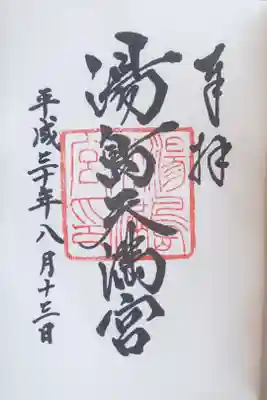 奉拝
湯島天満宮
平成三十年八月十三日